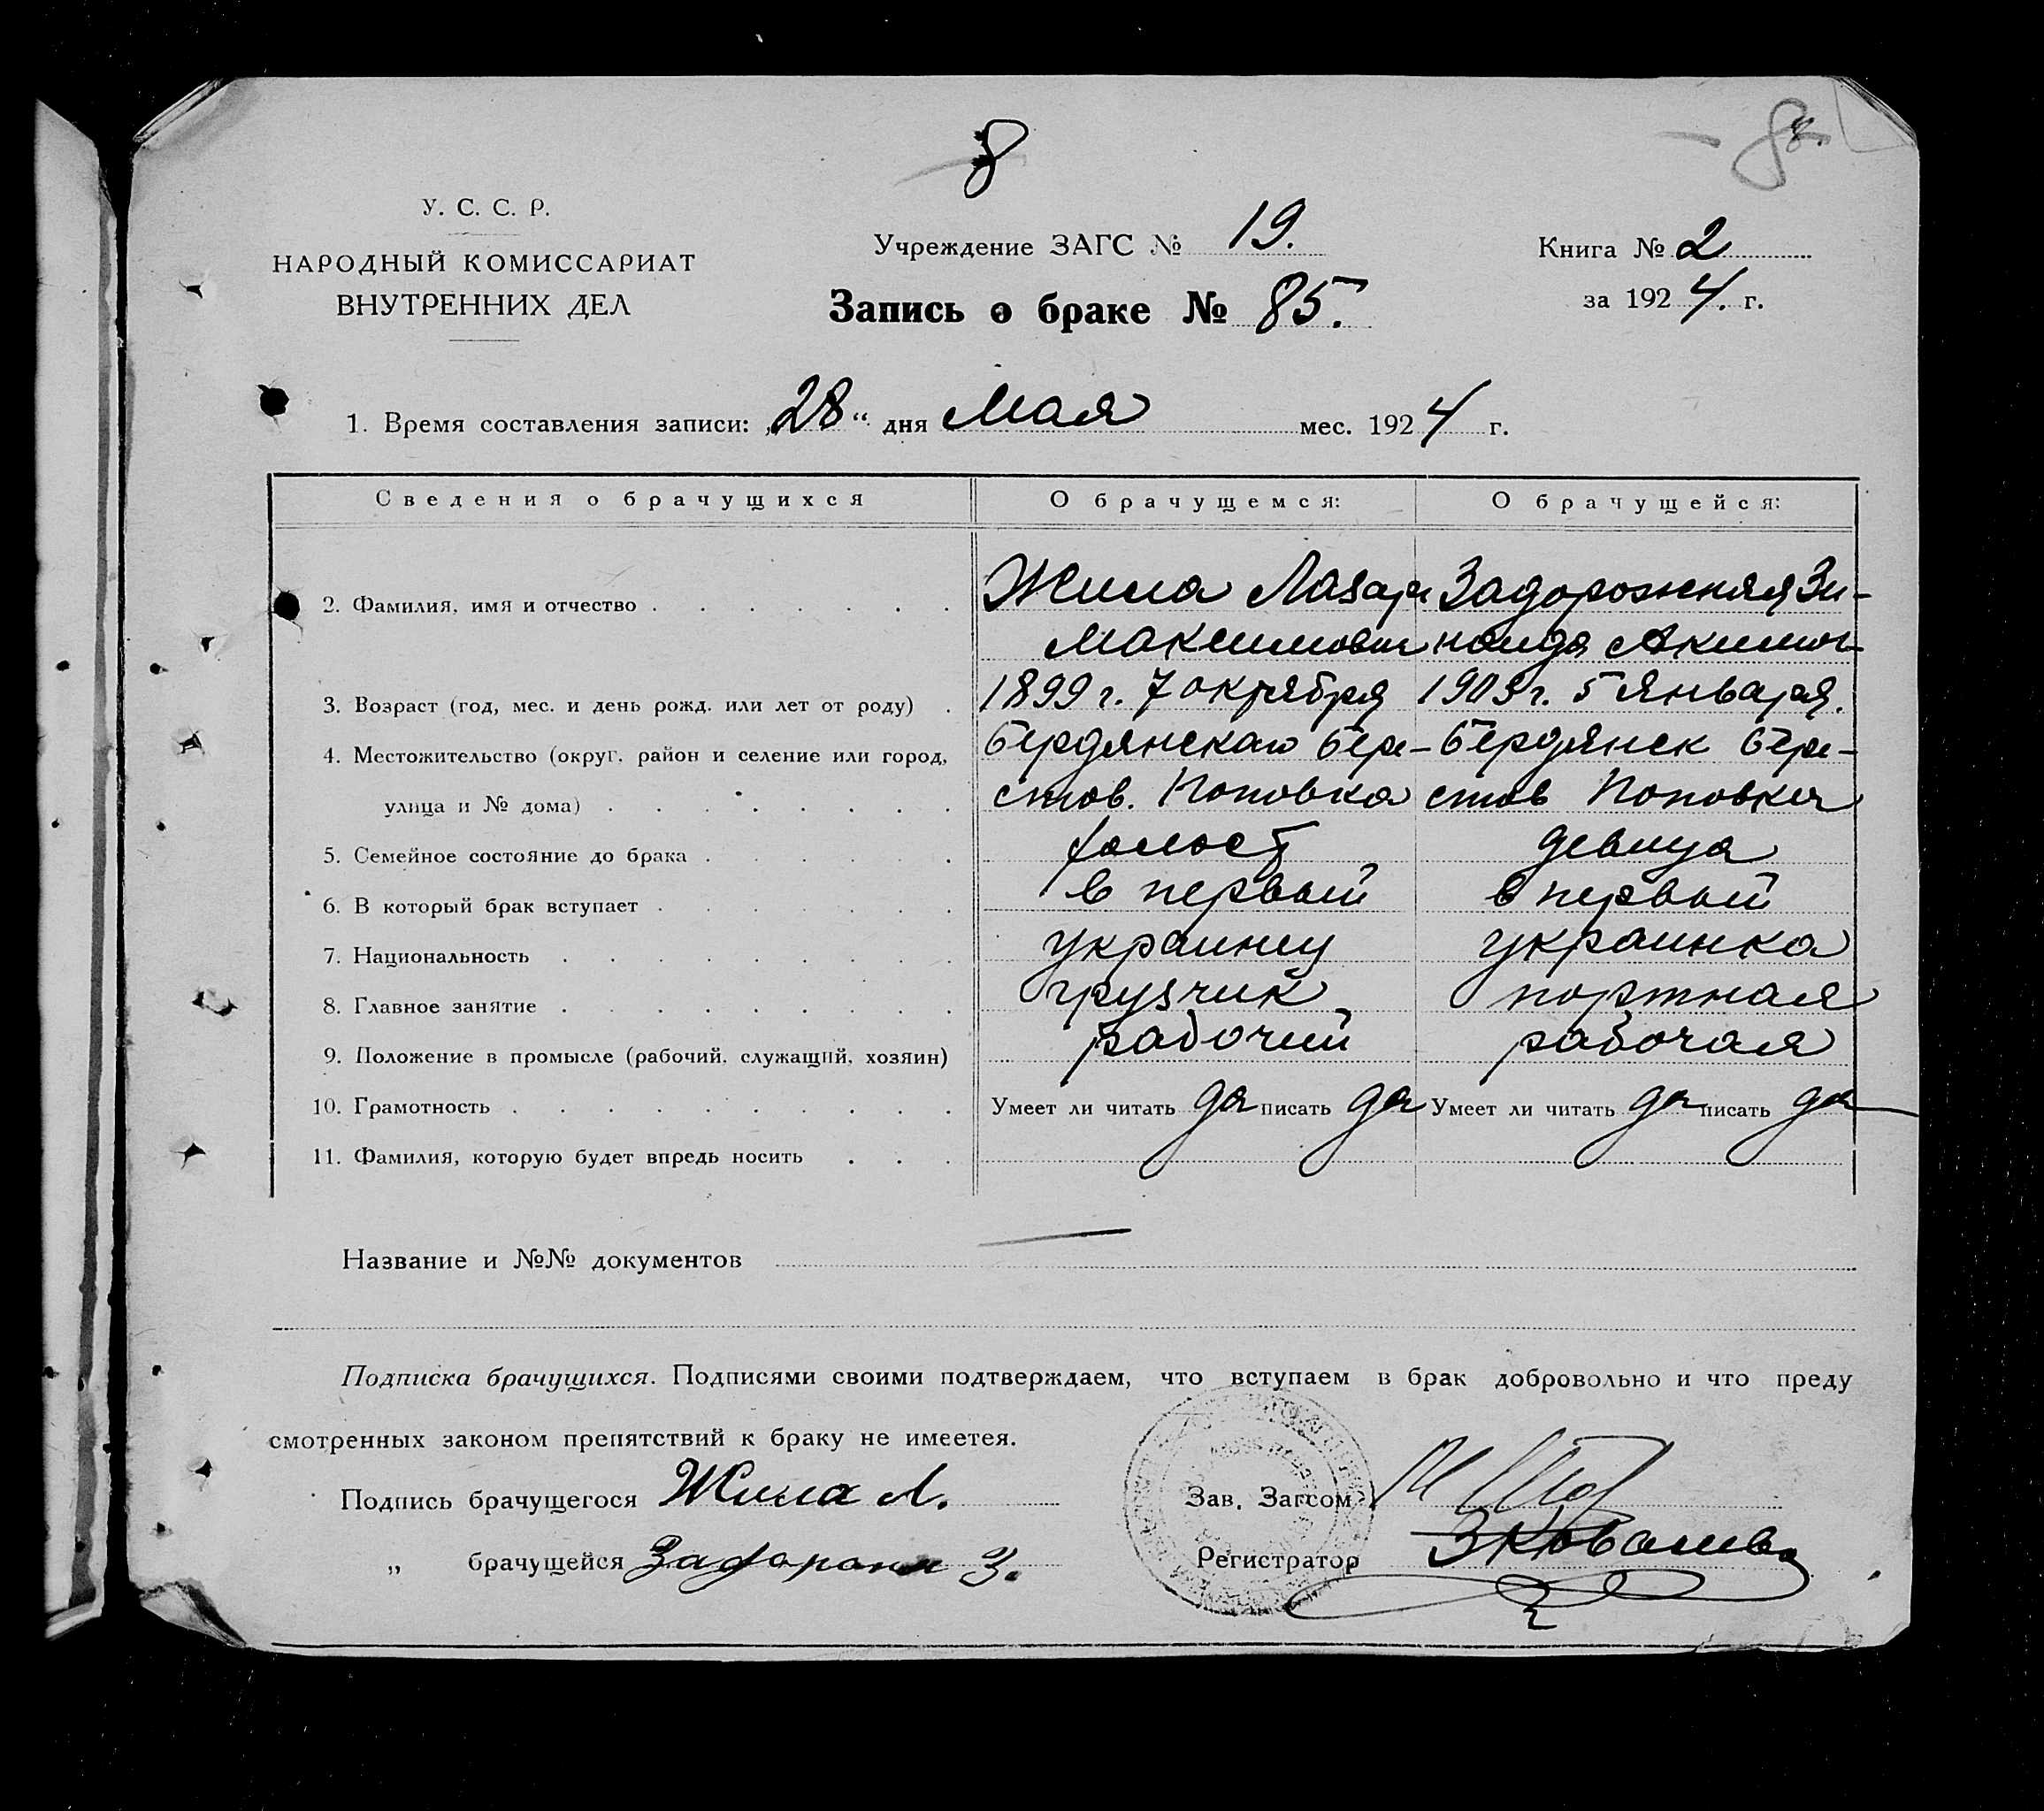 8
8
У. С. С. Р.
НАРОДНЫЙ КОМИССАРИАТ
ВНУТРЕННИХ ДЕЛ
Учреждение ЗАГС № 19.
Запись о браке № 85.
Книга № 2
за 1924. г.
1. Время составления записи: „28“ дня Мая мес. 1924 г.
Сведения о брачущихся О брачущемся: О брачущейся:
2. Фамилия, имя и отчество Жила Лазарь Задорожняя Зи-
Максимович наида Акимов-
3. Возраст (год, мес. и день рожд. или лет от роду) 1899 г. 7 октября 1903 г. 5 января.
4. Местожительство (округ, район и селение или город, Бердянская Бере- Бердянск Бере-
улица и № дома) стов. Поповка стов Поповка
5. Семейное состояние до брака холост девица
6. В который брак вступает в первый в первый
7. Национальность украинец украинка
8. Главное занятие грузчик портная
9. Положение в промысле (рабочий, служащий, хозяин) рабочий рабочая
10. Грамотность Умеет ли читать да писать да Умеет ли читать да писать да
11. Фамилия, которую будет впредь носить
Название и №№ документов
Подписка брачущихся. Подписями своими подтверждаем, что вступаем в брак добровольно и что преду
смотренных законом препятствий к браку не имеетея.
Подпись брачущегося Жила Л.
Зав. Загсом
„ брачущейся Задорожн З.
Регистратор ЗКовалева